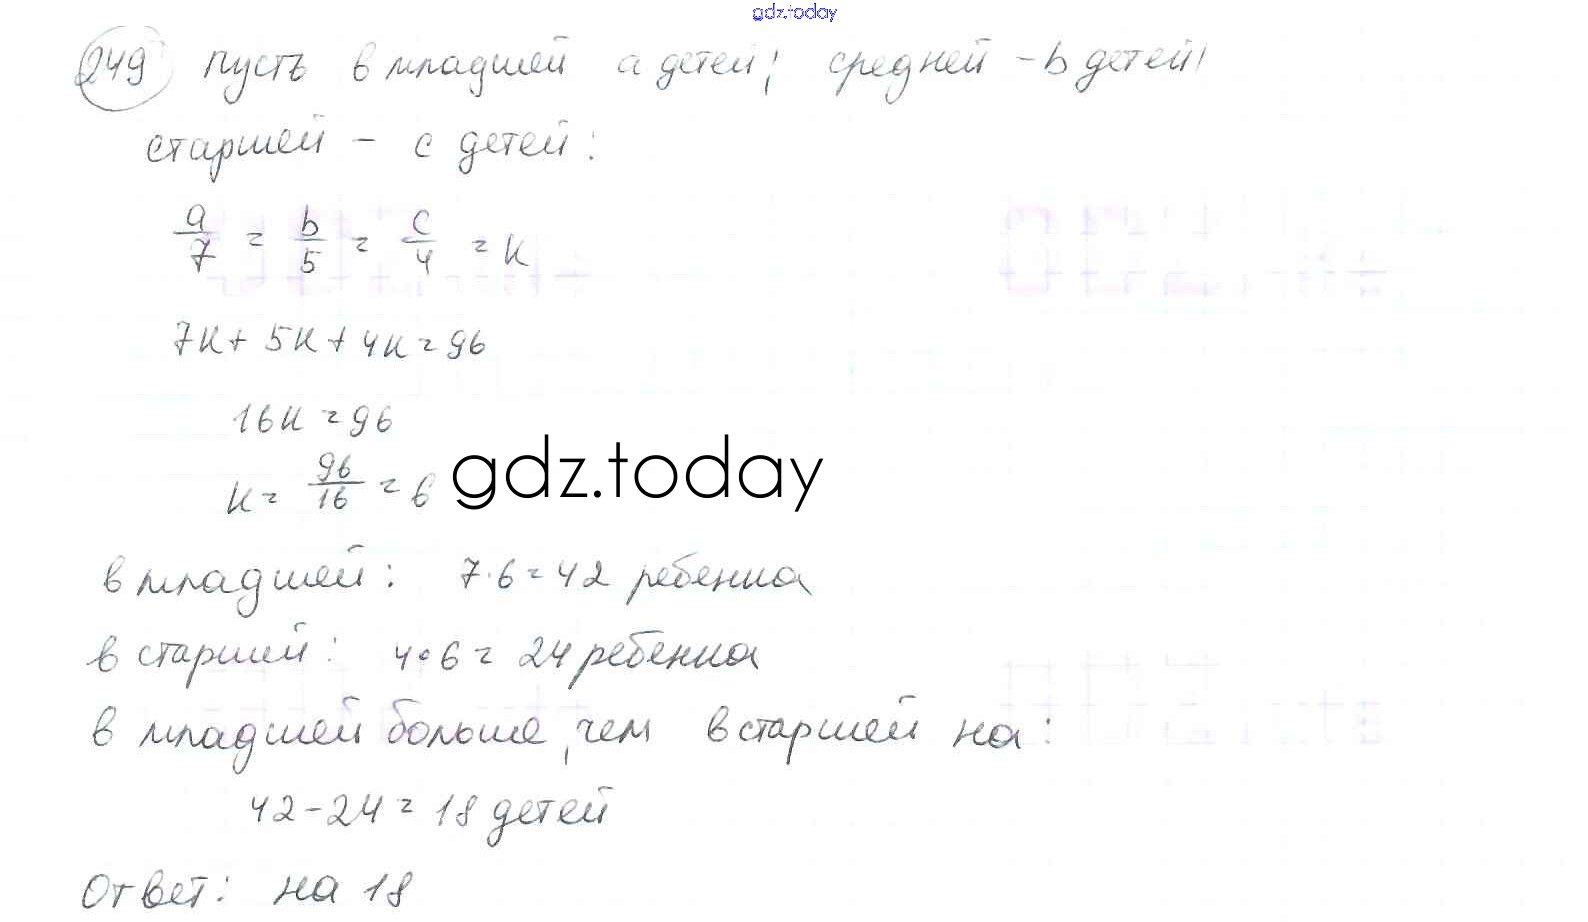 gdz.today
249 пусть в младшей a детей; средней - b детей;
старшей - c детей:
a/7 = b/5 = c/4 = k
7k + 5k + 4k = 96
16k = 96
k = 96/16 = 6
gdz.today
в младшей: 7·6 = 42 ребенка
в старшей: 4·6 = 24 ребенка
в младшей больше, чем в старшей на:
42 - 24 = 18 детей
Ответ: на 18